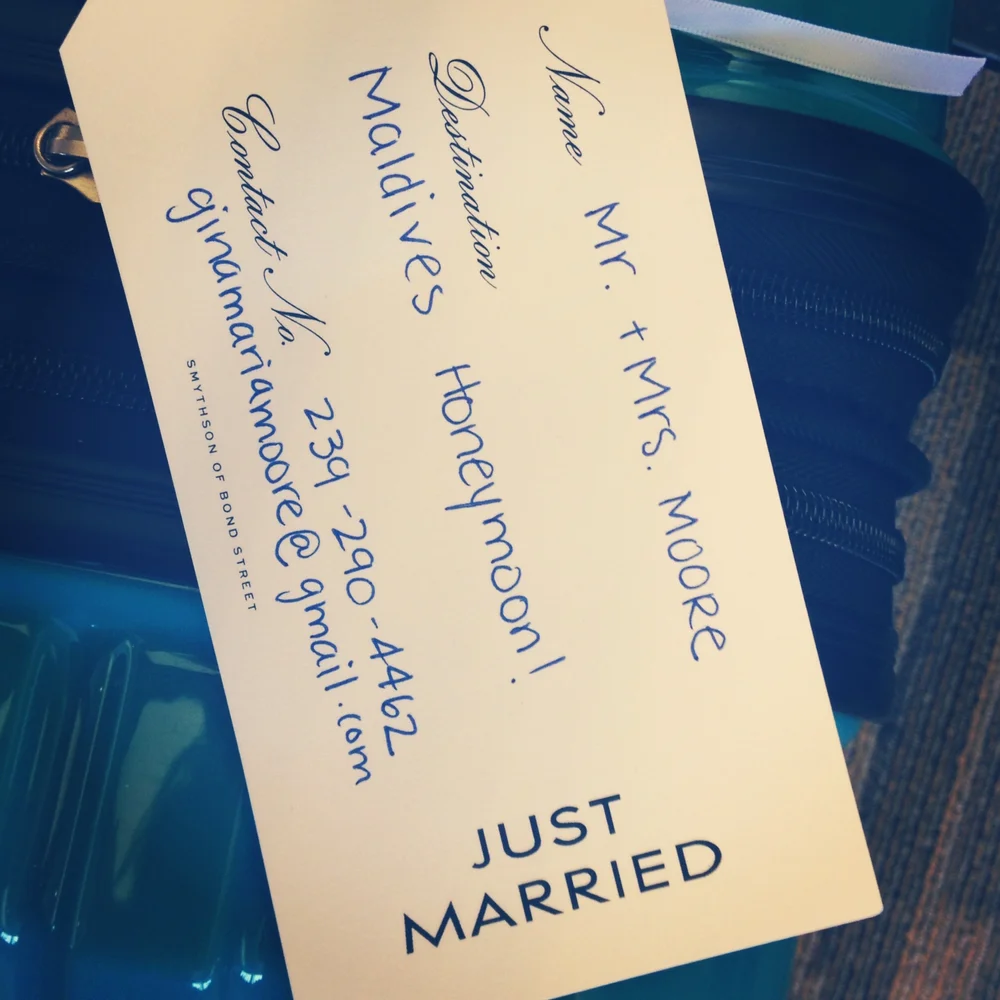 Name Mr. + Mrs. MOORE
Destination
Maldives Honeymoon!
Contact No. 239-290-4462
ginamariamoore@gmail.com
SMYTHSON OF BOND STREET
JUST
MARRIED